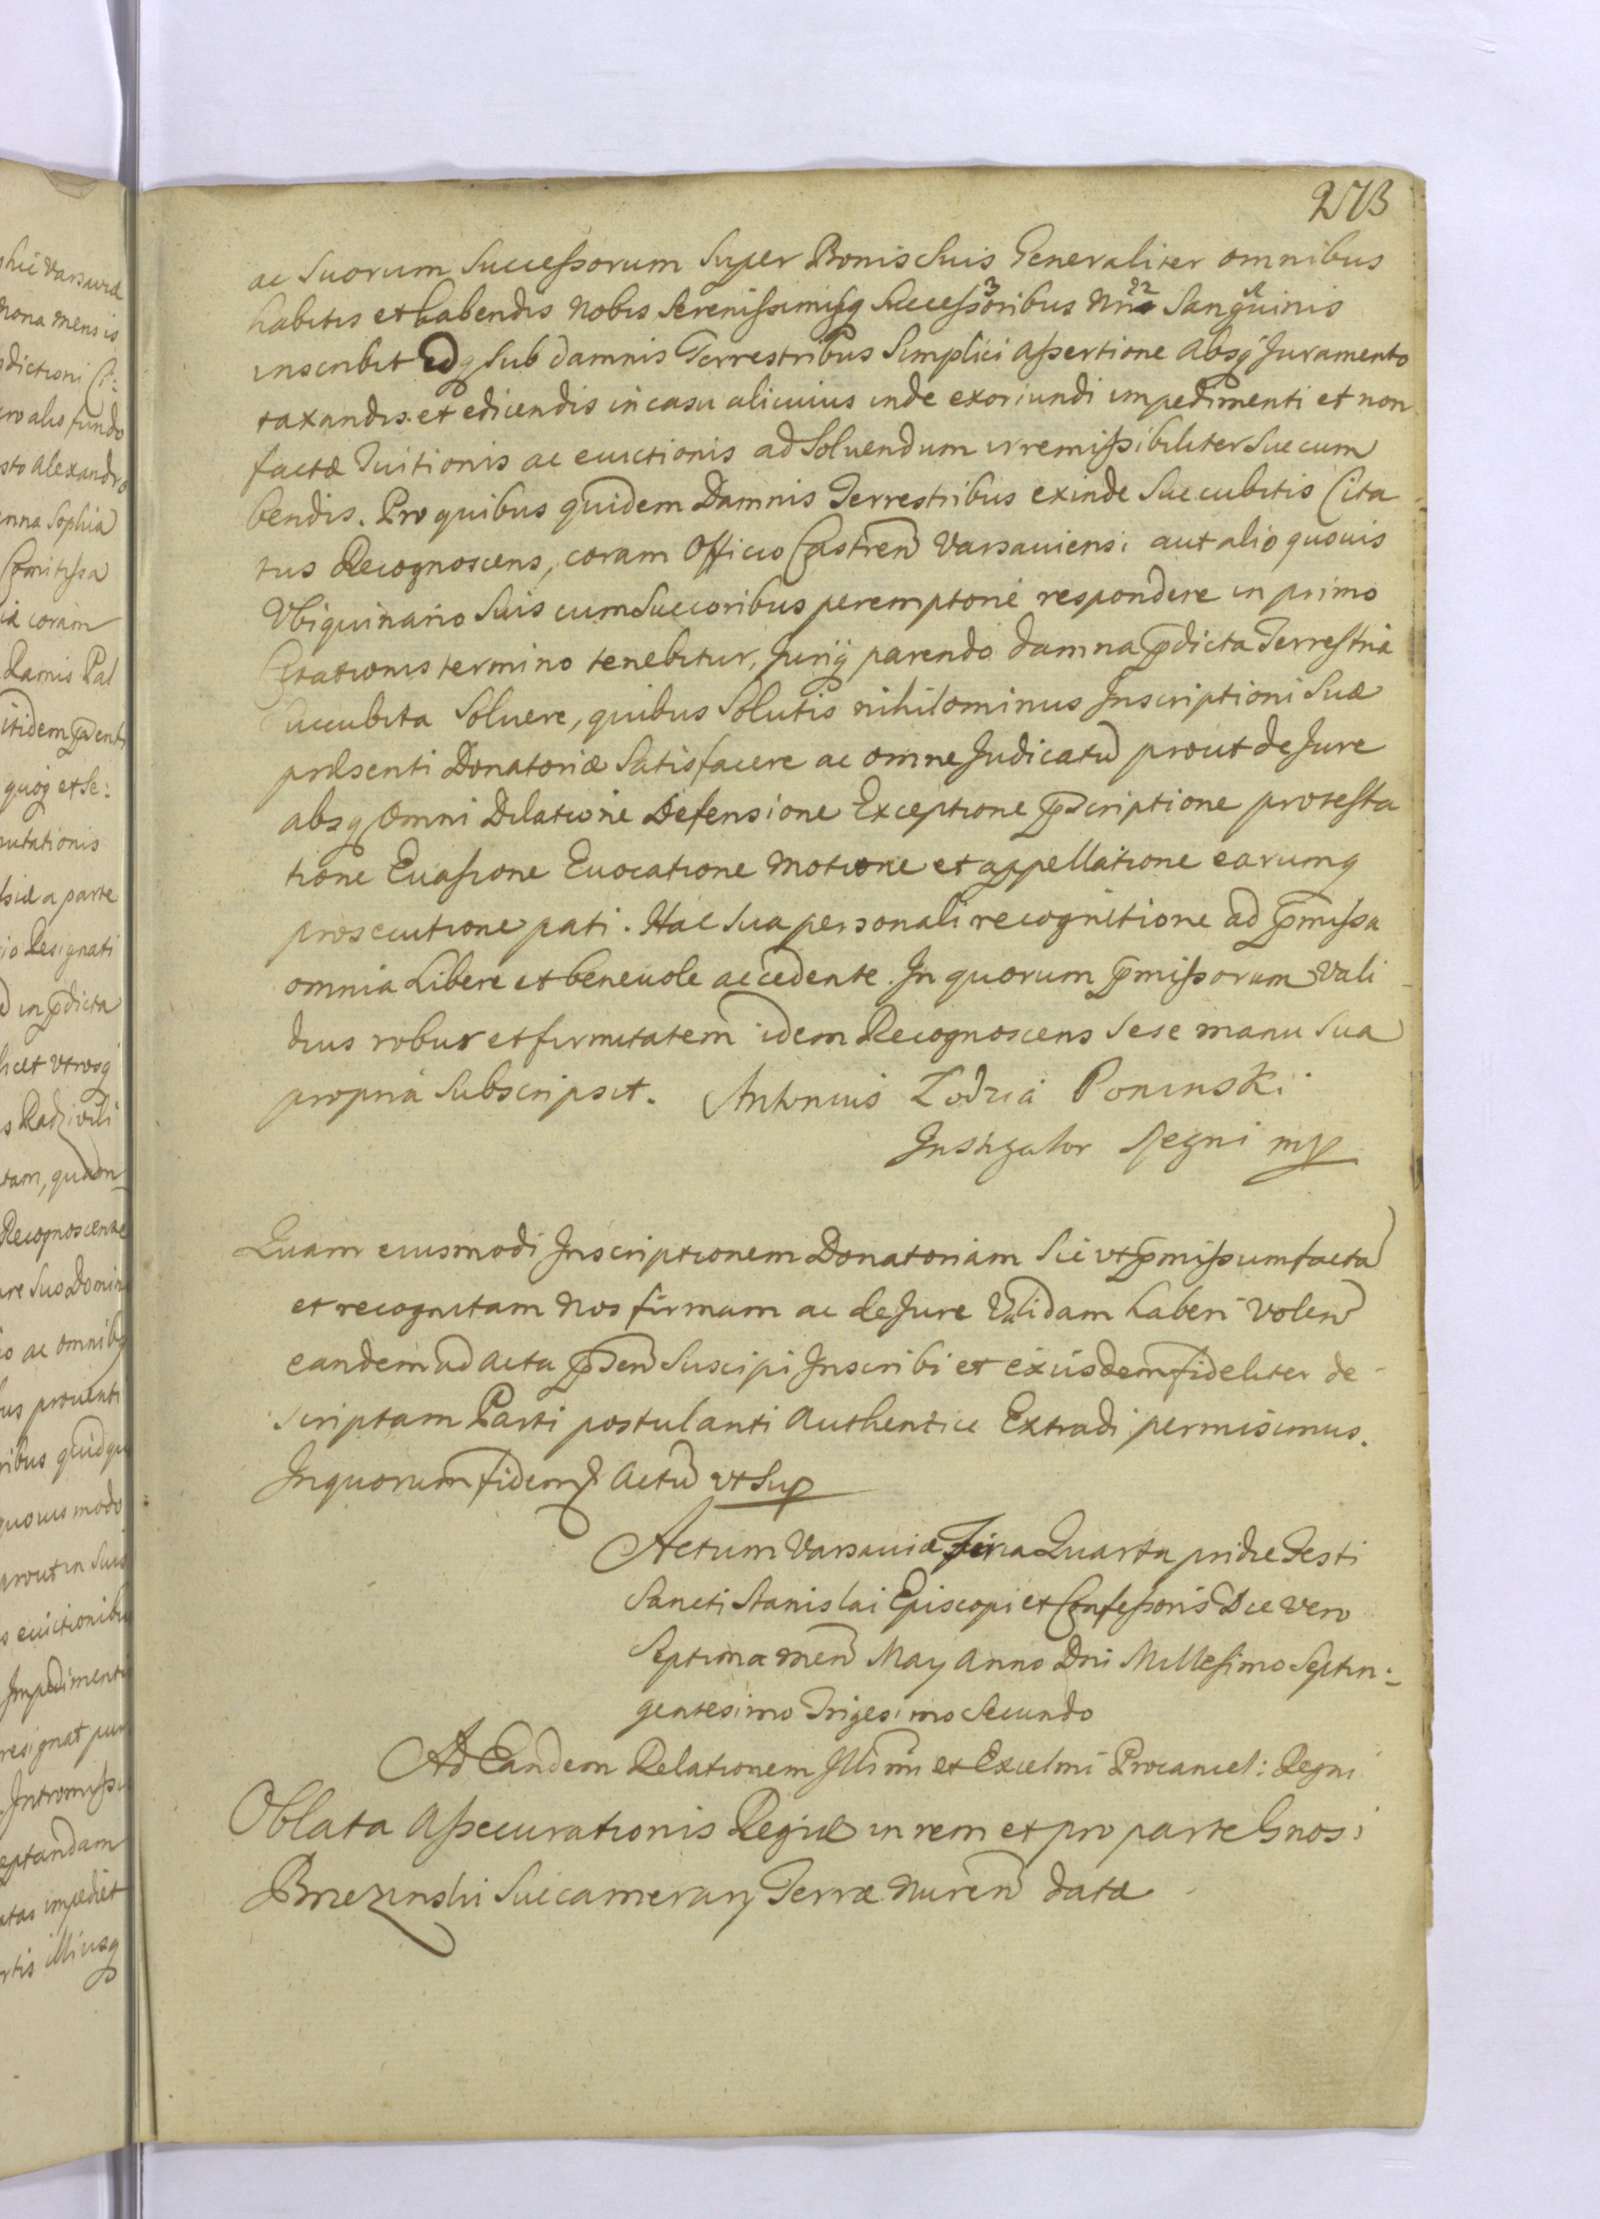 273
ac Suorum Successorum Super Bonis Suis Generaliter omnibus
habitis et habendis Nobis Serenissimisq Successoribus Nris Sangvinis
inscribit Idq sub damnis Terrestribus Simplici Assertione Absq Juramento
taxandis et edicendis in casu alicuius inde exoriundi impedimenti et non
factæ Tuitionis ac euictionis ad Soluendum irremissibiliter Succum
bendis. Pro quibus quidem Damnis Terrestribus exinde Succubitis Cita-
tus Recognoscens, coram Officio Castren Varsauiensi aut alio quouis
Vbiquinario Suis cum Succoribus peremptorie respondere in primo
Citationis termino tenebitur, Juriq parendo damna pdicta Terrestria
Succubita Soluere, quibus Solutis nihilominus Inscriptioni Suæ
præsenti Donatoriæ Satisfacere ac omne Judicatu prout de Jure
absq Omni Dilatione Defensione Exceptione pscriptione protesta
tione Euasione Euocatione Motione et appellatione earumq
prosecutione pati. Hac Sua personali recognitione ad pmissa
omnia Libere et beneuole accedente. In quorum pmissorum Vali-
dius robur et firmitatem idem Recognoscens Sese manu Sua
propria Subscripsit. Antonius Łodzia Poninski
Instigator Regni mp
Quam eiusmodi Inscriptionem Donatoriam Sic vt pmissum facta
et recognitam Nos firmam ac de Jure Validam haberi Volen
eandem ad Acta psen Suscipi Inscribi et exiisdem fideliter de-
scriptam Parti postulanti Authentice Extradi permisimus.
In quorum fidem Actu vt Sup
Actum Varsauiæ Feria Quarta pridie Festi
Sancti Stanislai Episcopi et Confessoris Die vero
Septima Men May Anno Dni Millesimo Septin-
gentesimo Trigesimo Secundo
Ad Eandem Relationem Illmi et Excelmi Procancel: Regni
Oblata Assecurationis Regiæ in rem et pro parte Gnosi
Brzezinski Succamerary Terræ Nuren datæ